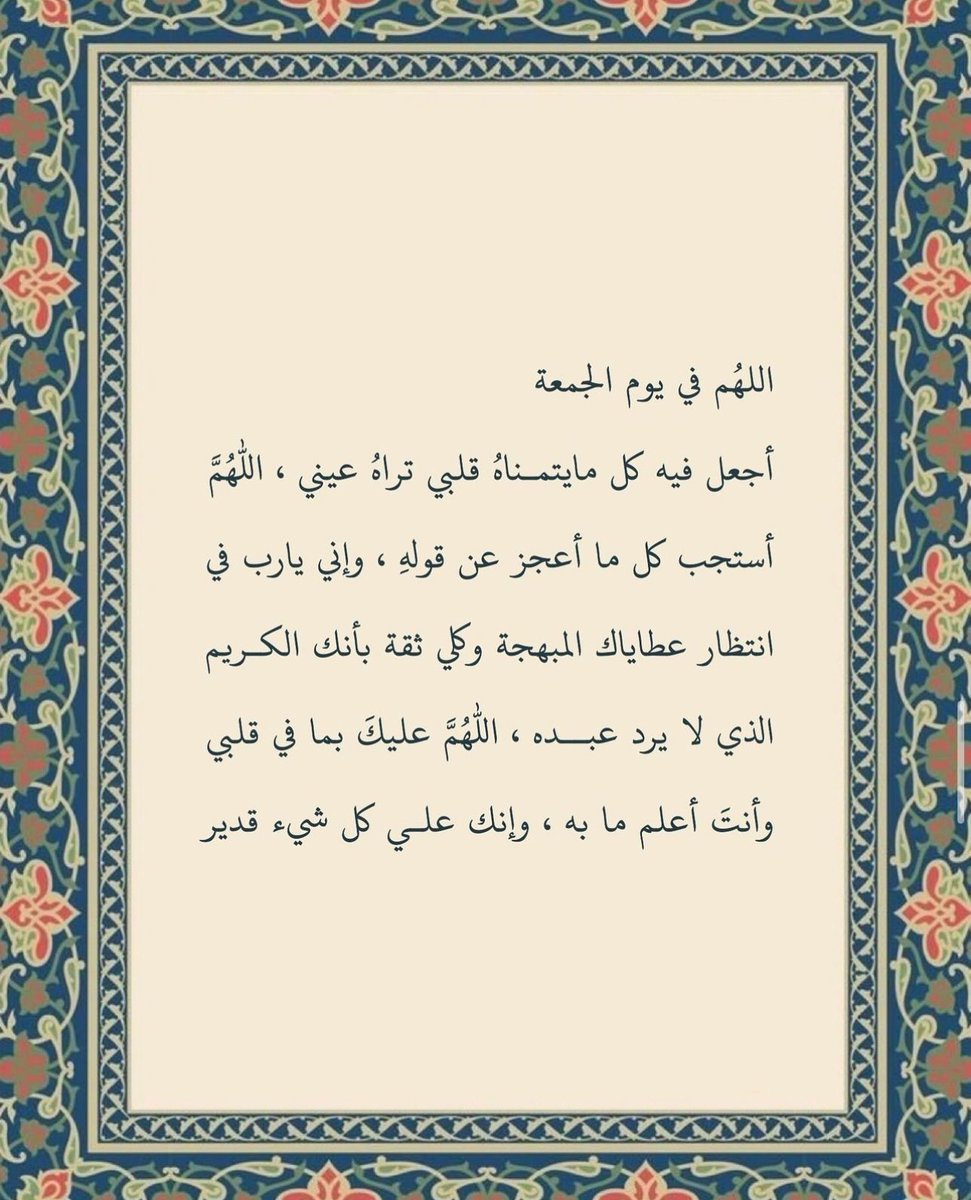 اللهُم في يوم الجمعة
أجعل فيه كل مايتمـناهُ قلبي تراهُ عيني ، اللّٰهُمَّ
أستجب كل ما أعجز عن قولهِ ، وإني يارب في
انتظار عطاياك المبهجة وكلي ثقة بأنك الكـريم
الذي لا يرد عبـــده ، اللّٰهُمَّ عليكَ بما في قلبي
وأنتَ أعلم ما به ، وإنك علـي كل شيء قدير